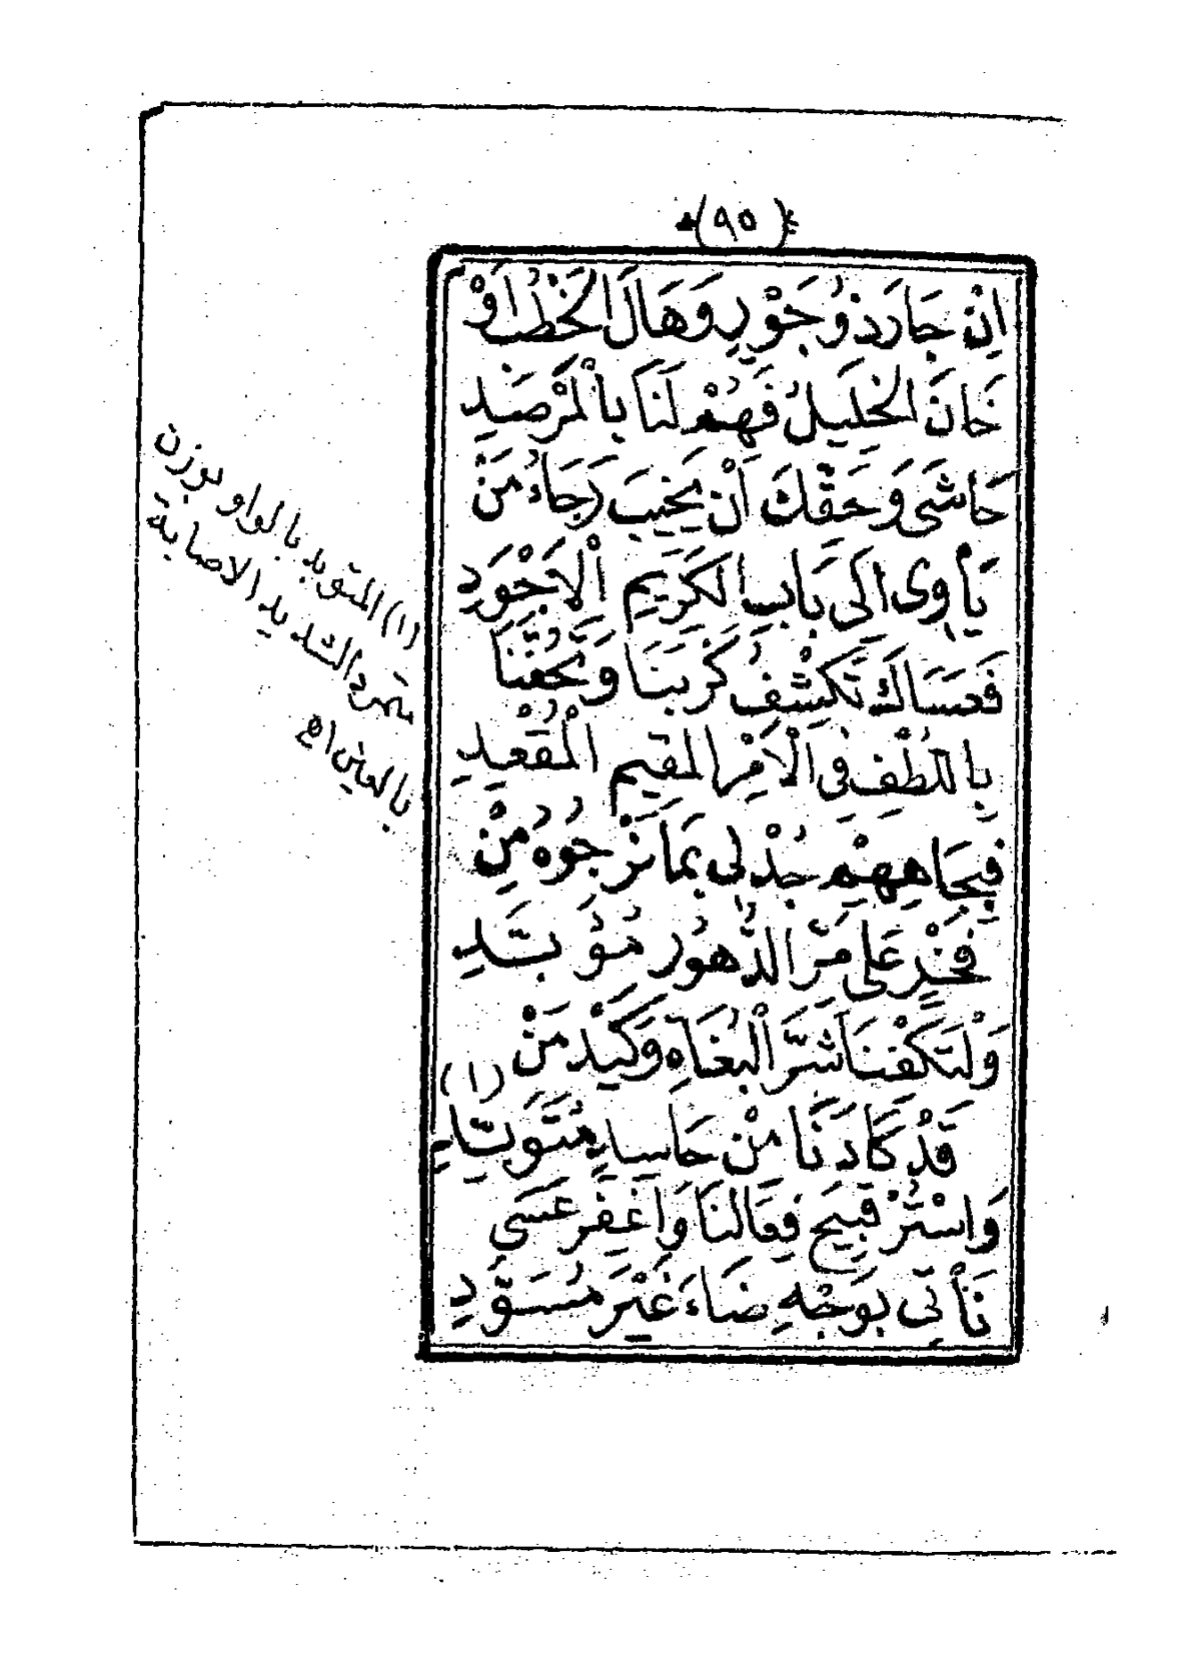 (٩٥)
اِنْ جَارَ ذُو جَوْرٍ وَهَالَ الْخَطْبُ اَوْ
خَانَ الْخَلِيلُ فَهُمْ لَنَا بِالْمَرْصَدِ
حَاشَى وَحَقِّكَ اَنْ يَخِيبَ رَجَاءُ مَنْ
يَأْوِى اَلَى بَابِ الْكَرِيمِ الْاَجْوَدِ
فَعَسَاكَ تَكْشِفُ كَرْبَنَا وَتَحُفَّنَا
بِاللُّطْفِ فِى الْاَمْرِ الْمُقِيمِ الْمُقْعِدِ
فَبِجَاهِهِمْ جُدْ لِى بِمَا نَرْجُوهُ مِنْ
فَخْرٍ عَلَى مَرِّ الدُّهُورِ مُؤَبَّدِ
وَلْتَكْفِنَا شَرَّ الْبُغَاةِ وَكَيْدَ مَنْ
قَدْ كَادَنَا مِنْ حَاسِدٍ مُتَوَبِّدِ (١)
وَاسْتُرْ قَبِيحَ فِعَالِنَا وَاغْفِرْ عَسَى
نَأْتِى بِوَجْهٍ ضَاءَ غَيْرَ مُسَوَّدِ
(١) المتوبد بالواو بوزن
متمرد الشديد الاصابة
بالعين اه